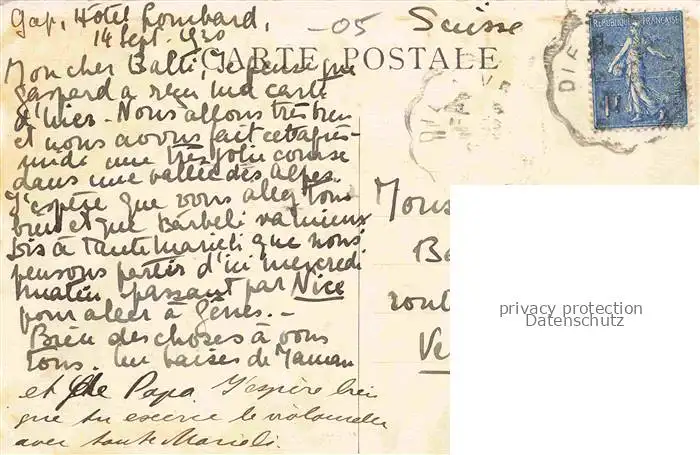 Gap, Hôtel Lombard,
14 Sept. 1920
-05 Suisse
CARTE POSTALE
REPUBLIQUE FRANÇAISE
DIE
Mon cher Balti, Je pense que
Gaspard a reçu ma carte
d'hier. Nous allons très bien
et nous avons fait cet après-
midi une très jolie course
dans une vallée des Alpes.
J'espère que vous allez tous
bien et que Bärbeli va mieux
Dis à Tante Marieli que nous
pensons partir d'ici mercredi
matin passant par Nice
pour aller à Gênes. -
Bien des choses à vous
tous. Un baiser de Maman
et de Papa. J'espère bien
que tu exerce le violoncelle
avec tante Marieli.
Mons
Be
rout
Ve
privacy protection
Datenschutz